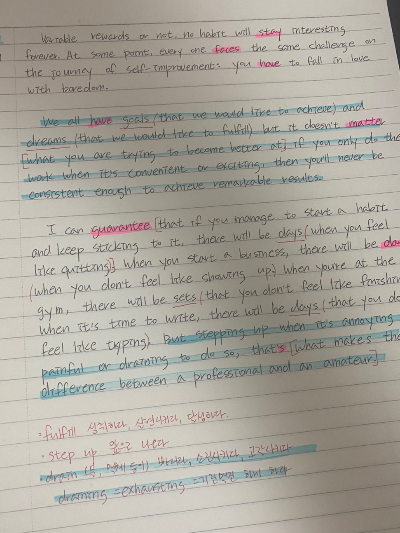 Variable rewards or not, no habit will stay interesting
forever. At some point, every one faces the same challenge on
the journey of self-improvement: you have to fall in love
with boredom.
We all have goals (that we would like to achieve) and
dreams (that we would like to fulfill), but it doesn't matter
[what you are trying to become better at] if you only do the
work when it's convenient or exciting, then you'll never be
consistent enough to achieve remarkable results.
I can guarantee [that if you manage to start a habit
and keep sticking to it, there will be days (when you feel
like quitting)] when you start a business, there will be da
(when you don't feel like showing up) when you're at the
gym, there will be sets (that you don't feel like finishin
when it's time to write, there will be days (that you do
feel like typing). But stepping up when it's annoying
painful or draining to do so, that's [what makes the
difference between a professional and an amateur]
· fulfill 실현하다,
· step up 앞으로 나오다
· drain
draining = exhausting =